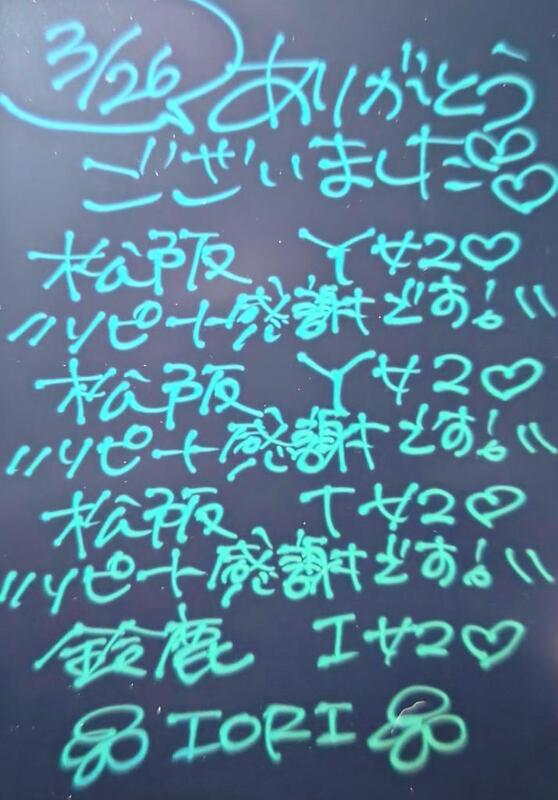 3/26 ありがとう
ございました♡♡
松阪 Y様2♡
〃リピート感謝です!〃
松阪 Y様2♡
〃リピート感謝です!〃
松阪 T様2♡
〃リピート感謝です!〃
鈴鹿 I様2♡
IORI